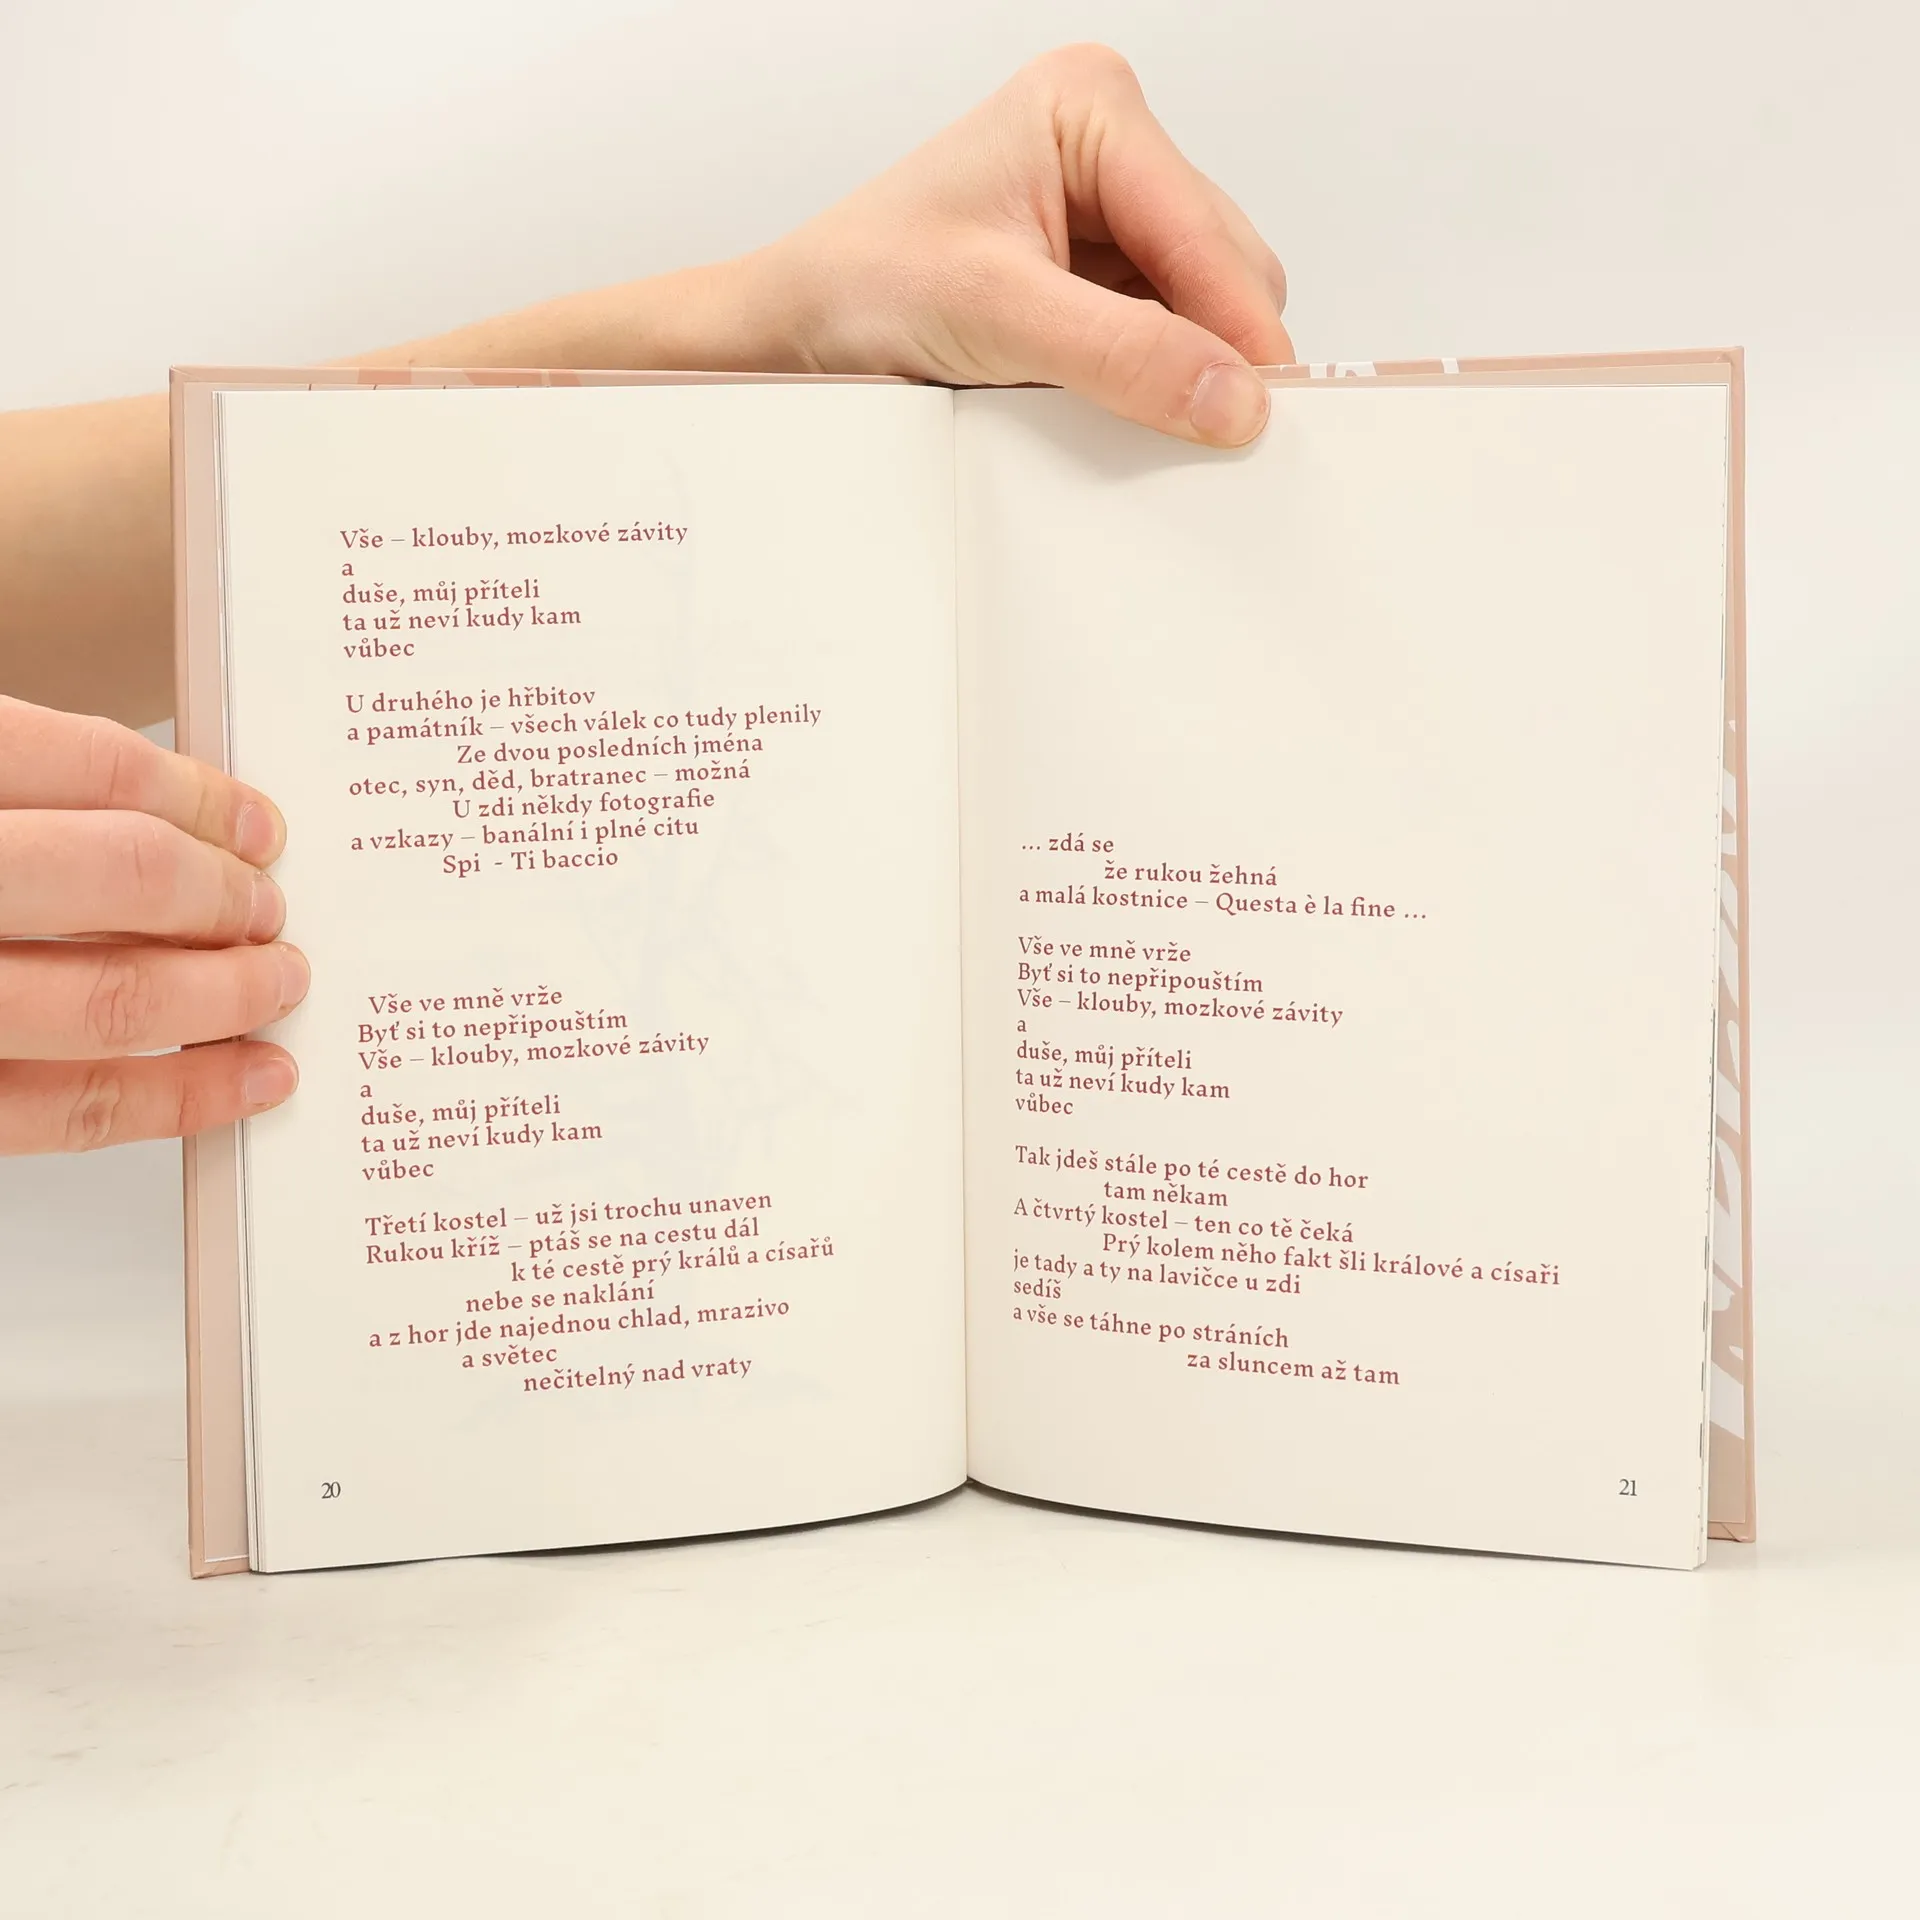 Vše – klouby, mozkové závity
a
duše, můj příteli
ta už neví kudy kam
vůbec
U druhého je hřbitov
a památník – všech válek co tudy plenily
Ze dvou posledních jména
otec, syn, děd, bratranec – možná
U zdi někdy fotografie
a vzkazy – banální i plné citu
Spi - Ti baccio
Vše ve mně vrže
Byť si to nepřipouštím
Vše – klouby, mozkové závity
a
duše, můj příteli
ta už neví kudy kam
vůbec
Třetí kostel – už jsi trochu unaven
Rukou kříž – ptáš se na cestu dál
k té cestě prý králů a císařů
nebe se naklání
a z hor jde najednou chlad, mrazivo
a světec
nečitelný nad vraty
20
... zdá se
že rukou žehná
a malá kostnice – Questa è la fine ...
Vše ve mně vrže
Byť si to nepřipouštím
Vše – klouby, mozkové závity
a
duše, můj příteli
ta už neví kudy kam
vůbec
Tak jdeš stále po té cestě do hor
tam někam
A čtvrtý kostel – ten co tě čeká
Prý kolem něho fakt šli králové a císaři
je tady a ty na lavičce u zdi
sedíš
a vše se táhne po stráních
za sluncem až tam
21